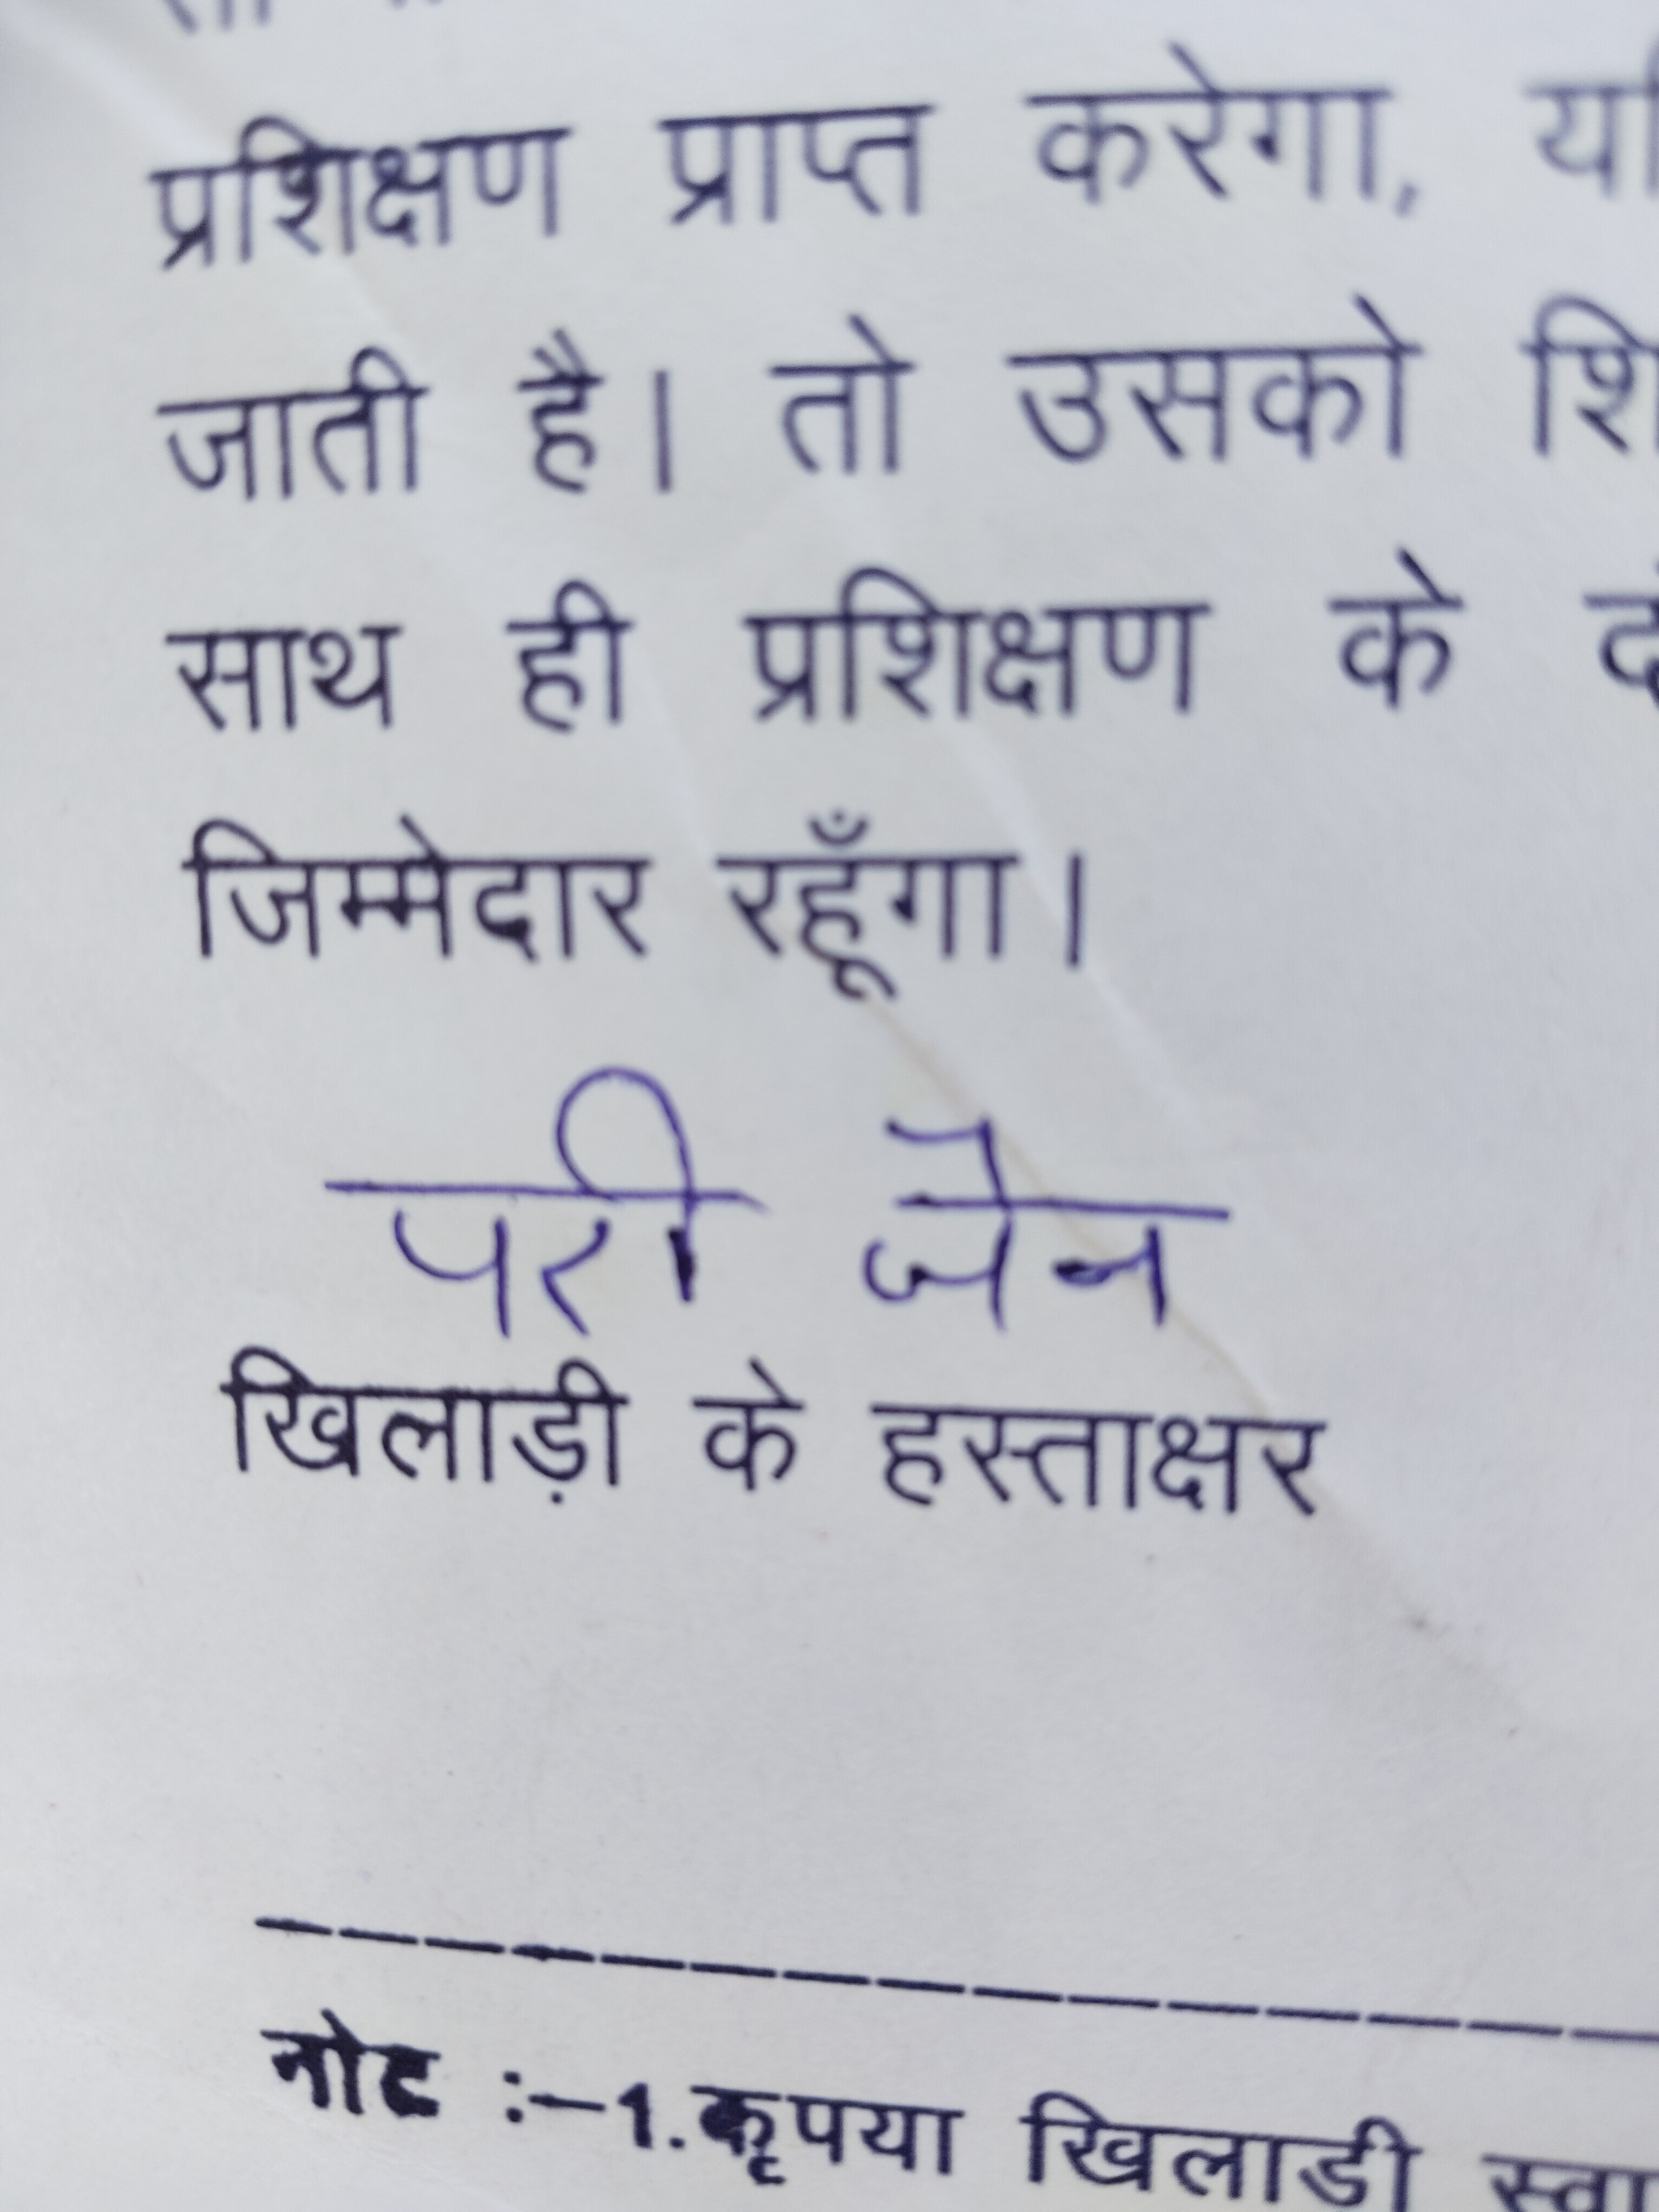 प्रशिक्षण प्राप्त करेगा,
जाती है। तो उसको
साथ ही प्रशिक्षण के
जिम्मेदार रहूँगा।
परी जैन
खिलाड़ी के हस्ताक्षर
नोट :–1.कृपया खिलाडी